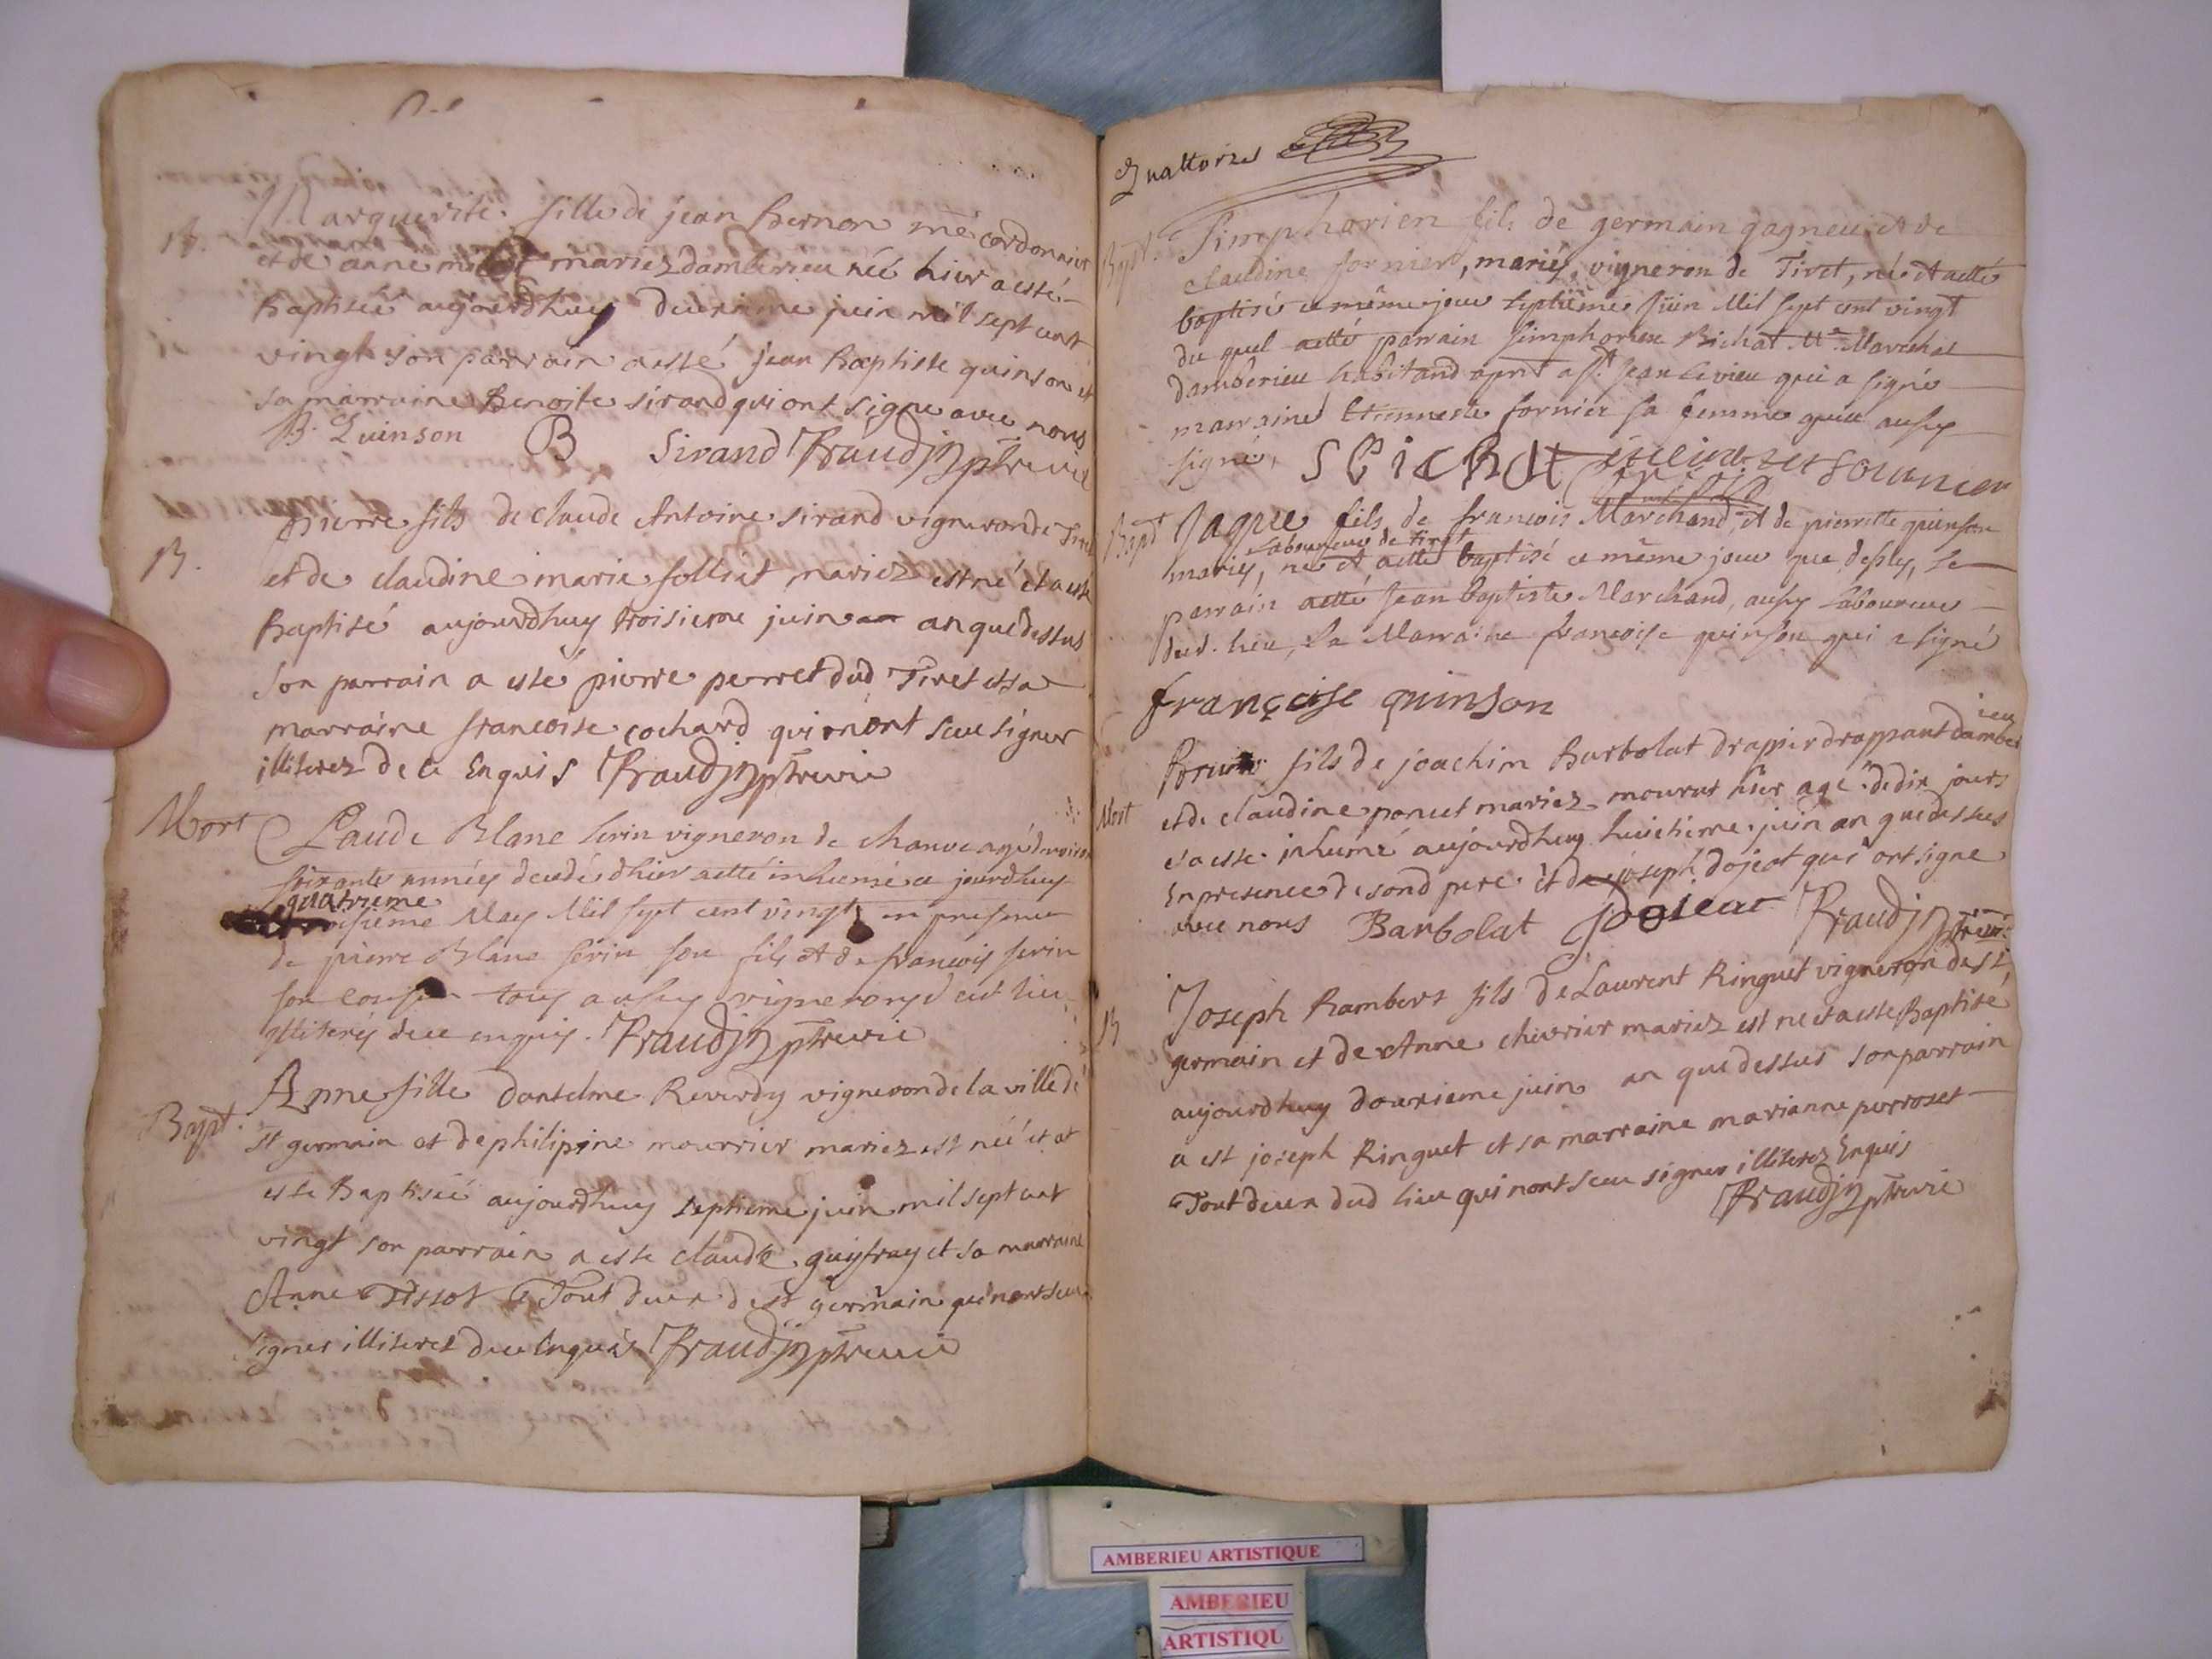 B.
Marguerite fille de jean hernon me cordonnier
et de anne mariez damberieu née hier a esté
Baptisée aujourdhuy deuxieme juin mil sept cent
vingt son parrain a esté jean Baptiste quinson et
sa marraine Benoite sirand qui ont signe avec nous
B. Quinson B Sirand Fraudin ptre vic
B.
pierre fils de claude Antoine sirand vigneron de
et de claudine marie folliet mariez est né et a esté
Baptisé aujourdhuy troisieme juin an que dessus
son parrain a esté pierre perret dud Tiret et sa
marraine francoise cochard qui n'ont sceu signer
illiterez de ce Enquis Fraudin ptre vic
Mort
Claude Blanc serin vigneron de chauve agé denviron
soixante années decedé dhier aetté inhumé ce jourdhuy
quatrieme
May Mil sept cent vingt en presence
de pierre Blanc serin son fils et de francois serin
son cousin tous aussy vignerons dud lieu
illiterés de ce enquis. Fraudin ptre vic
Bapt.
Anne fille dantelme Reverdy vigneron de la ville de
st germain et de philipine mourrier mariez est née et at
este Baptisée aujourdhuy septieme juin mil sept cent
vingt son parrain a este claude guyfray et sa marraine
Anne Tissot Tout deux de st germain qui n'ont sceu
signer illiterez de ce Enquis Fraudin ptre vic
Quattorzes
Bapt.
Simphorien fils de germain gagneur et de
claudine fornier, mariés, vigneron de Tiret, né et aetté
baptisé ce même jour septiême juin Mil sept cent vingt
du quel aetté parrain simphorien Bichat Me Marechal
damberieu habitand a st jean le vieu qui a signé
marraine Etiennette fornier sa femme qui a aussy
signé, S BiCHAt
Bapt
Jaque fils de francois Marchand, et de pierrette quinson
Laboureur de tiret
mariés, né et aetté baptisé ce même jour que dessus, le
parrain aetté Jean baptiste Marchand, aussy laboureur
dud. lieu, la Marraine francoise quinson qui a signé
françoise quinson
ieu
Mort
fils de joachim Barbolat drapier drappant damber
et de claudine poncet mariez mourut hier agé de dix jours
et a esté inhumé aujourdhuy huictieme juin an que dessus
En presence de sond pere et de joseph dojeat qui ont signe
avec nous Barbolat J Dojeat Fraudin ptre vic
B
Joseph Rambert fils de Laurent Ringuet vigneron de st
germain et de Anne chevrier mariez est ne et a este Baptisé
aujourdhuy douxieme juin an que dessus son parrain
a est joseph Ringuet et sa marraine marianne perroset
Tout deux dud lieu qui n'ont sceu signer illiterez Enquis
Fraudin ptre vic
AMBERIEU ARTISTIQUE
AMBERIEU
ARTISTIQU